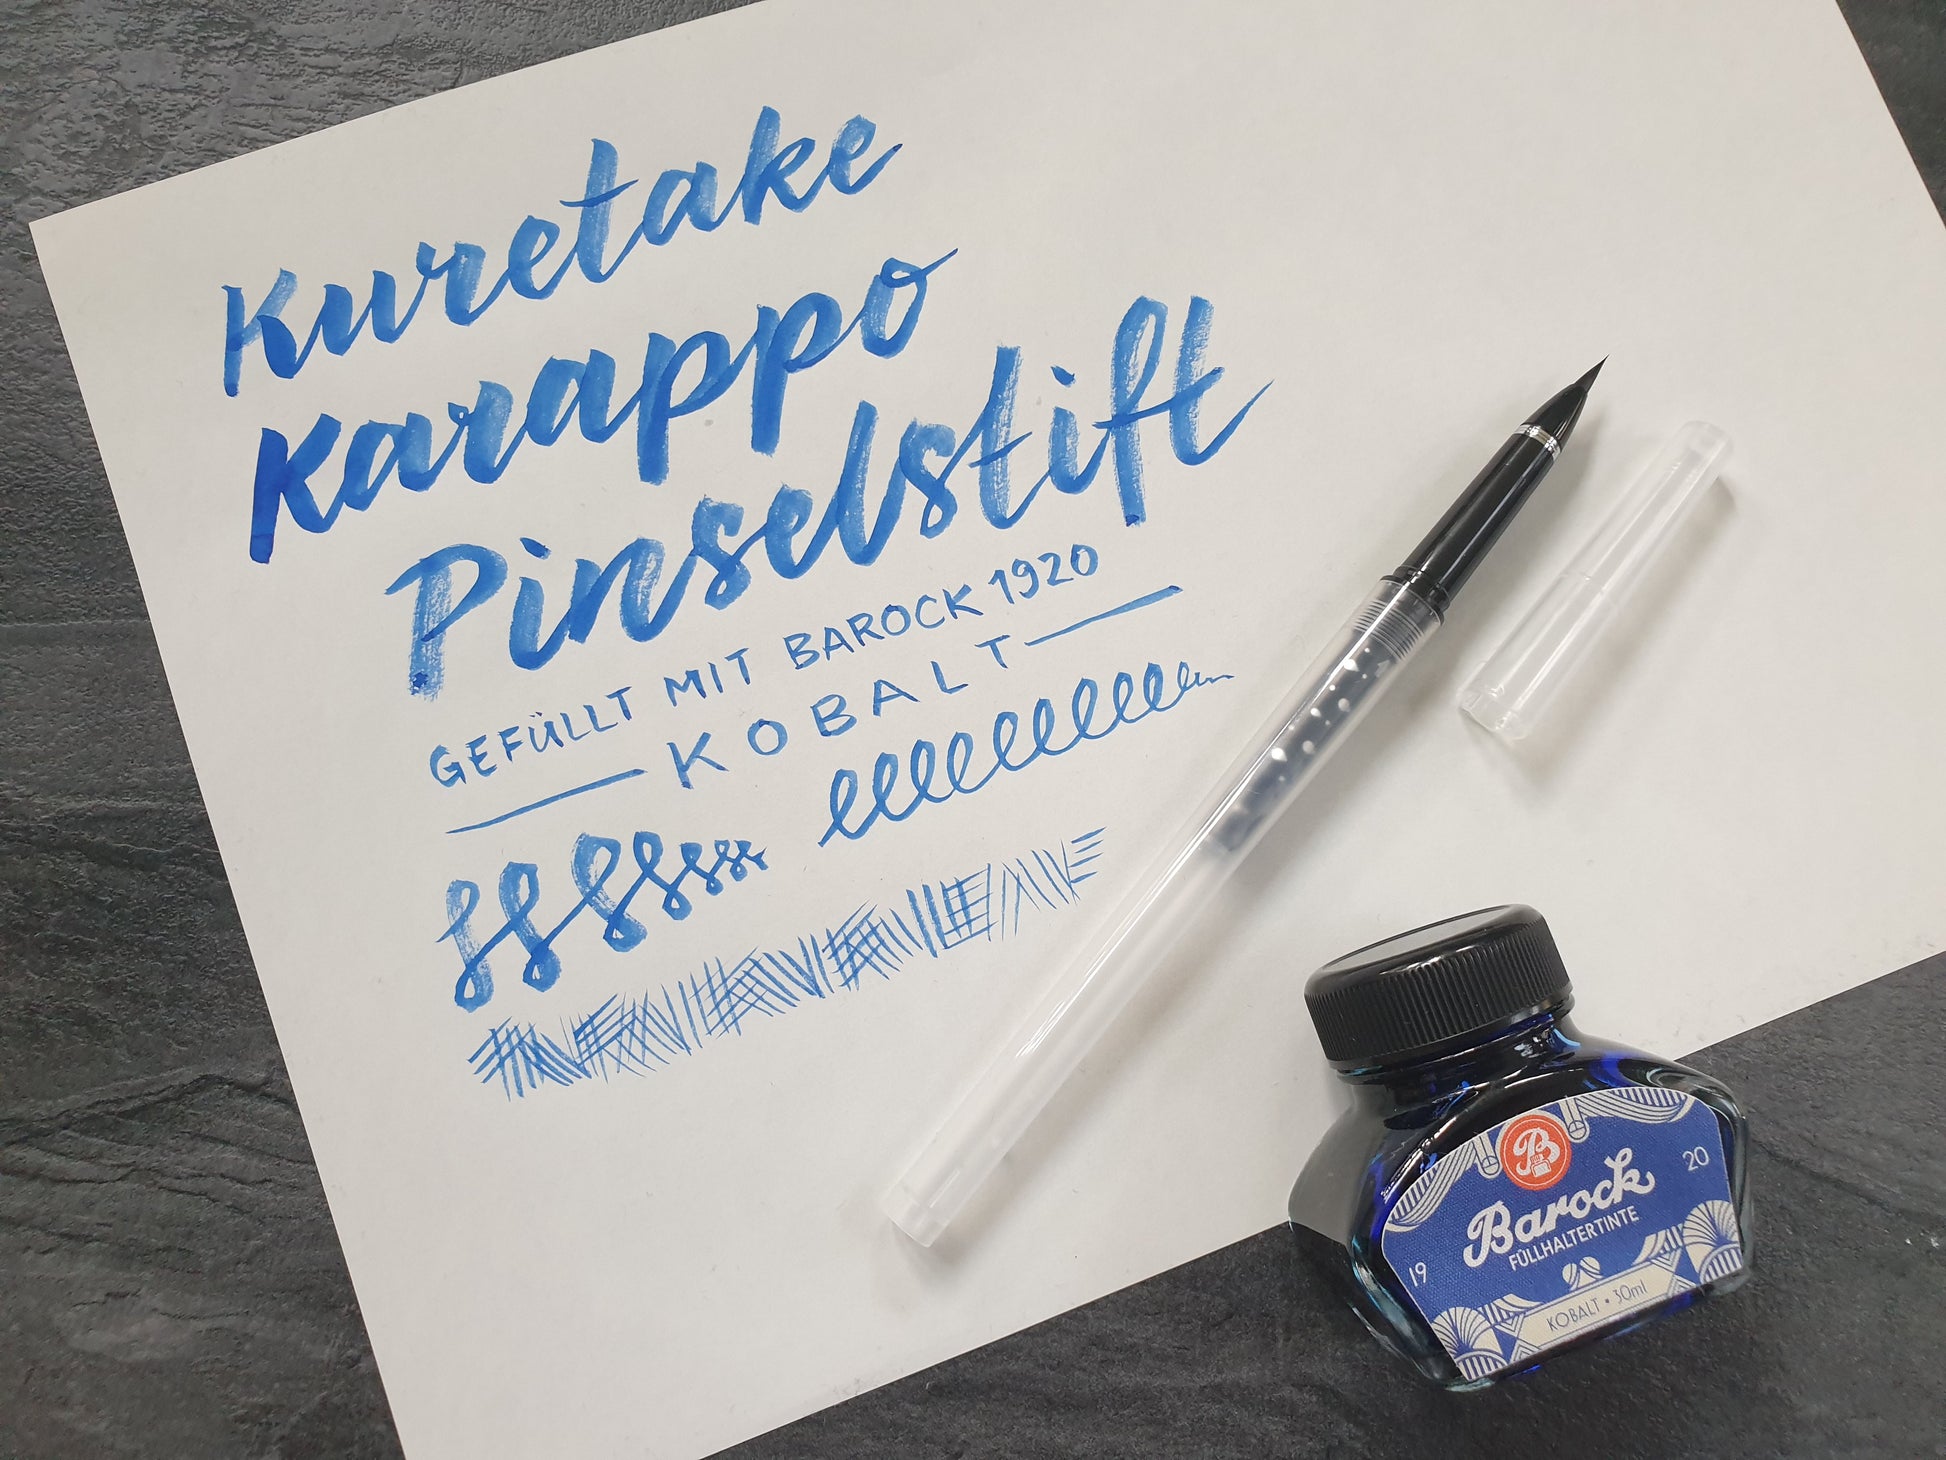 Kuretake
Karappo
Pinselstift
GEFÜLLT MIT BAROCK 1920
KOBALT
B
Barock
FÜLLHALTERTINTE
19 20
KOBALT • 30ml